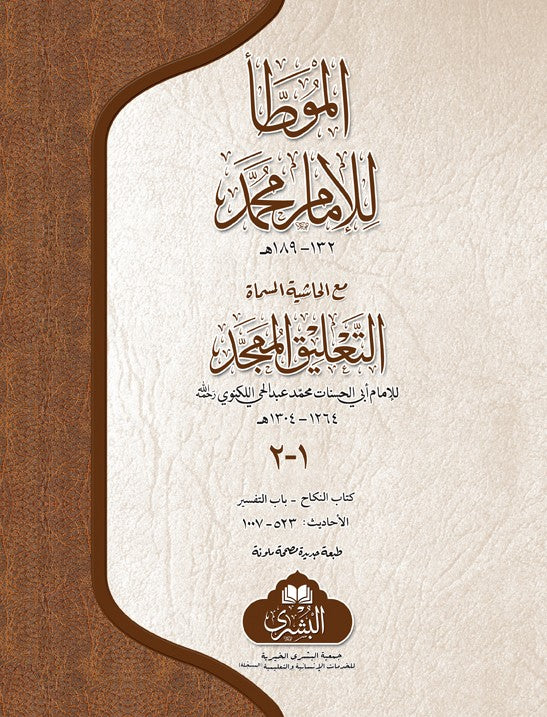 الموطأ
للإمام محمد
١٣٢ – ١٨٩هـ
مع الحاشية المسماة
التعليق الممجد
للإمام أبي الحسنات محمد عبد الحي اللكنوي رحمه الله
١٢٦٤ – ١٣٠٤هـ
١-٢
كتاب النكاح - باب التفسير
الأحاديث: ٥٢٣ - ١٠٠٧
طبعة جديدة مصححة ملونة
البشرى
جمعية البشرى الخيرية
للخدمات الإنسانية والتعليمية (المسجلة)